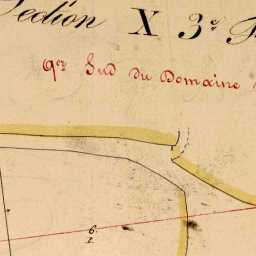 Section X 3e
Qer Sud du Domaine
6
1